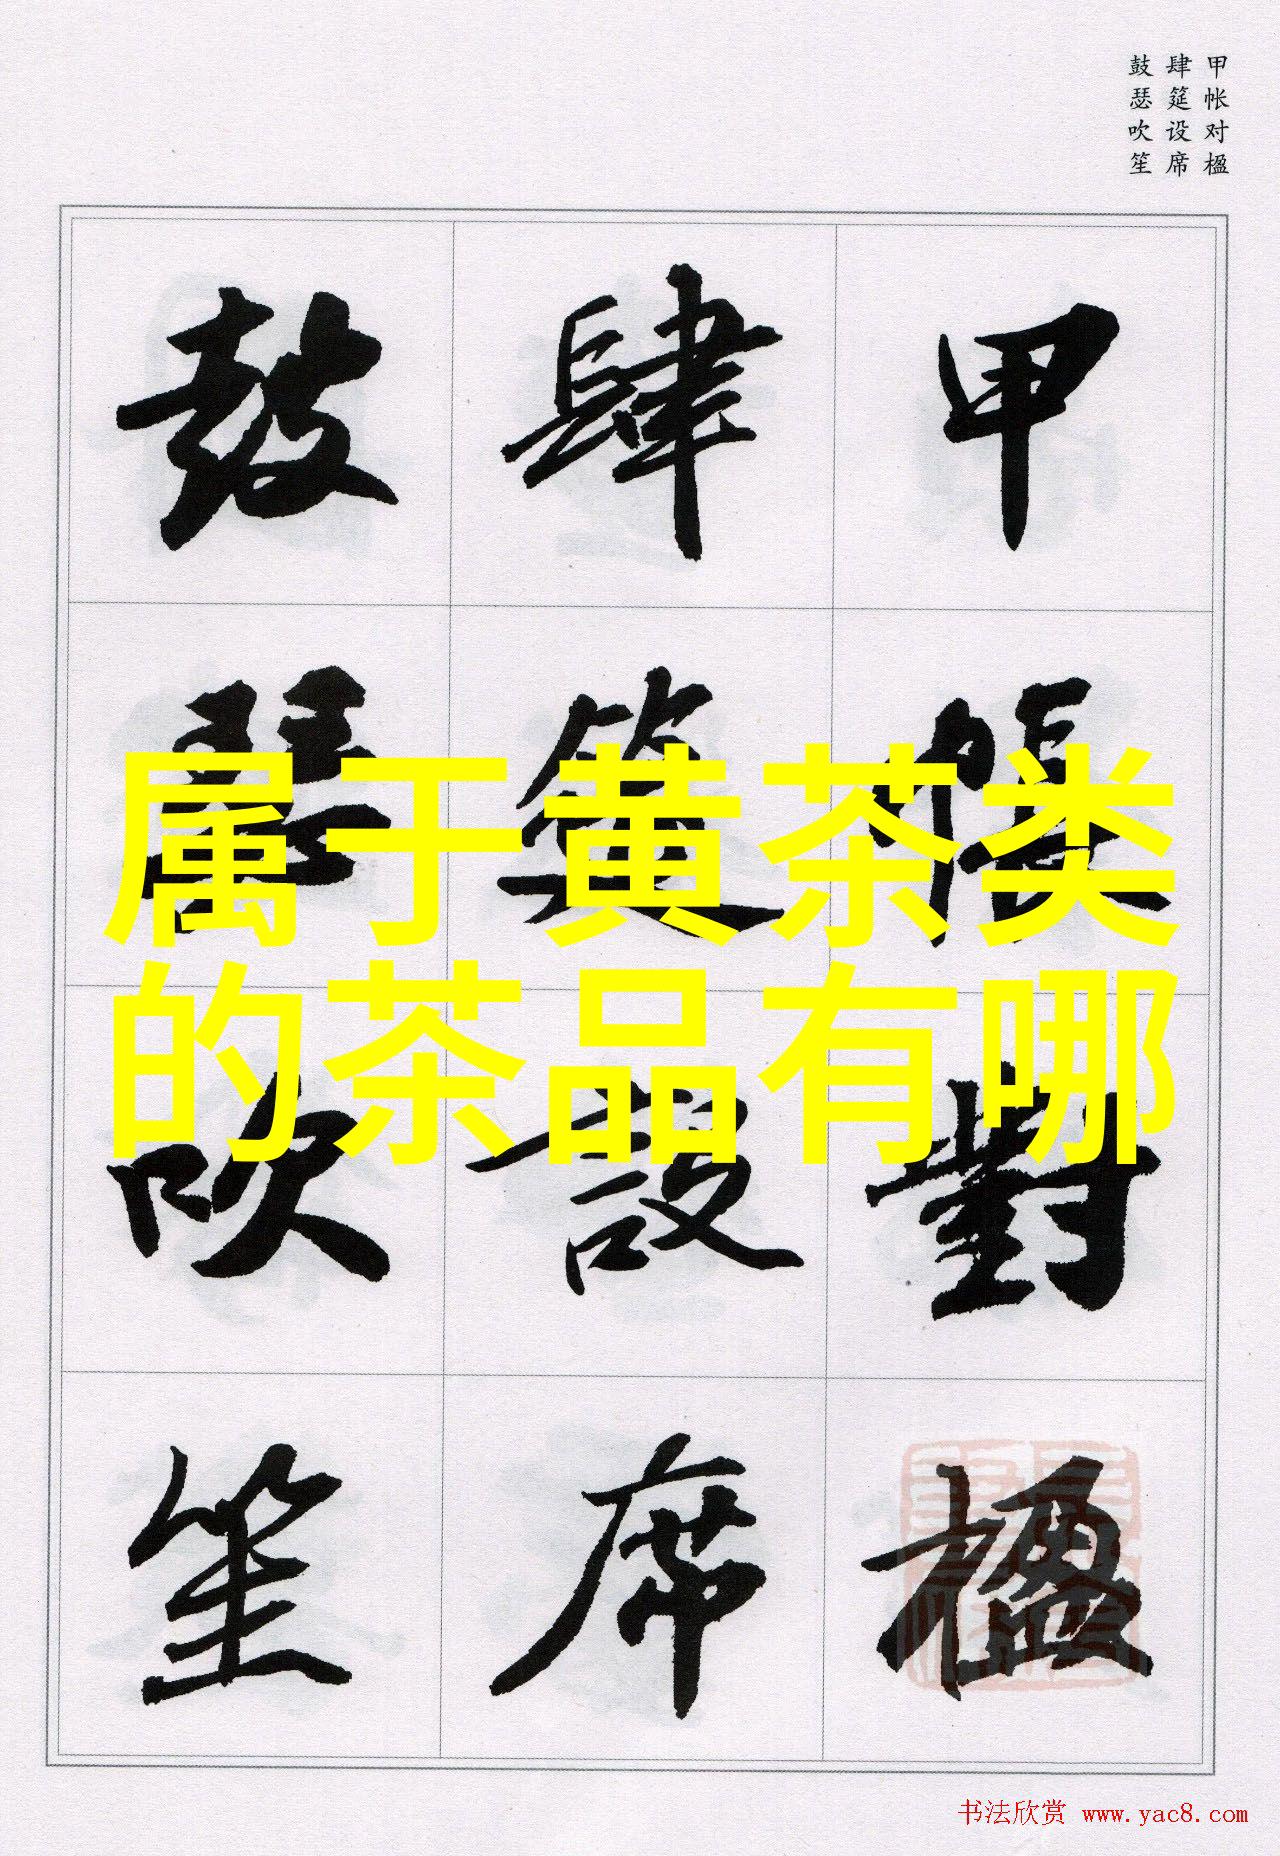 甲帐对楹
肆筵设席
鼓瑟吹笙
甲帳對楹
肆筵設席
鼓瑟吹笙
属于黄茶类
的茶品有哪
书法欣赏 www.yac8.com